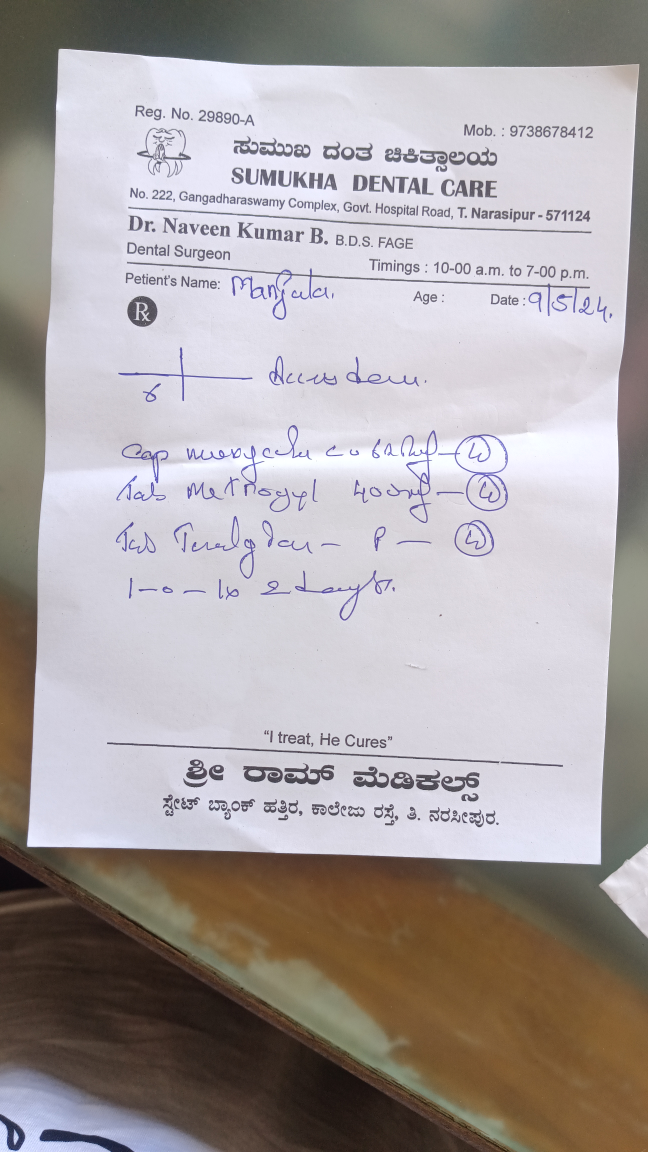 Reg. No. 29890-A
Mob. : 9738678412
ಸುಮುಖ ದಂತ ಚಿಕಿತ್ಸಾಲಯ
SUMUKHA DENTAL CARE
No. 222, Gangadharaswamy Complex, Govt. Hospital Road, T. Narasipur - 571124
Dr. Naveen Kumar B. B.D.S. FAGE
Dental Surgeon
Timings : 10-00 a.m. to 7-00 p.m.
Petient's Name: Manjula.
Age : Date : 9/5/24.
Rx
Cap
Tab Metrogyl 400mg - 4
Tab - P - 4
1-0-1x 2 days.
"I treat, He Cures"
ಶ್ರೀ ರಾಮ್ ಮೆಡಿಕಲ್ಸ್
ಸ್ಟೇಟ್ ಬ್ಯಾಂಕ್ ಹತ್ತಿರ, ಕಾಲೇಜು ರಸ್ತೆ, ತಿ. ನರಸೀಪುರ.